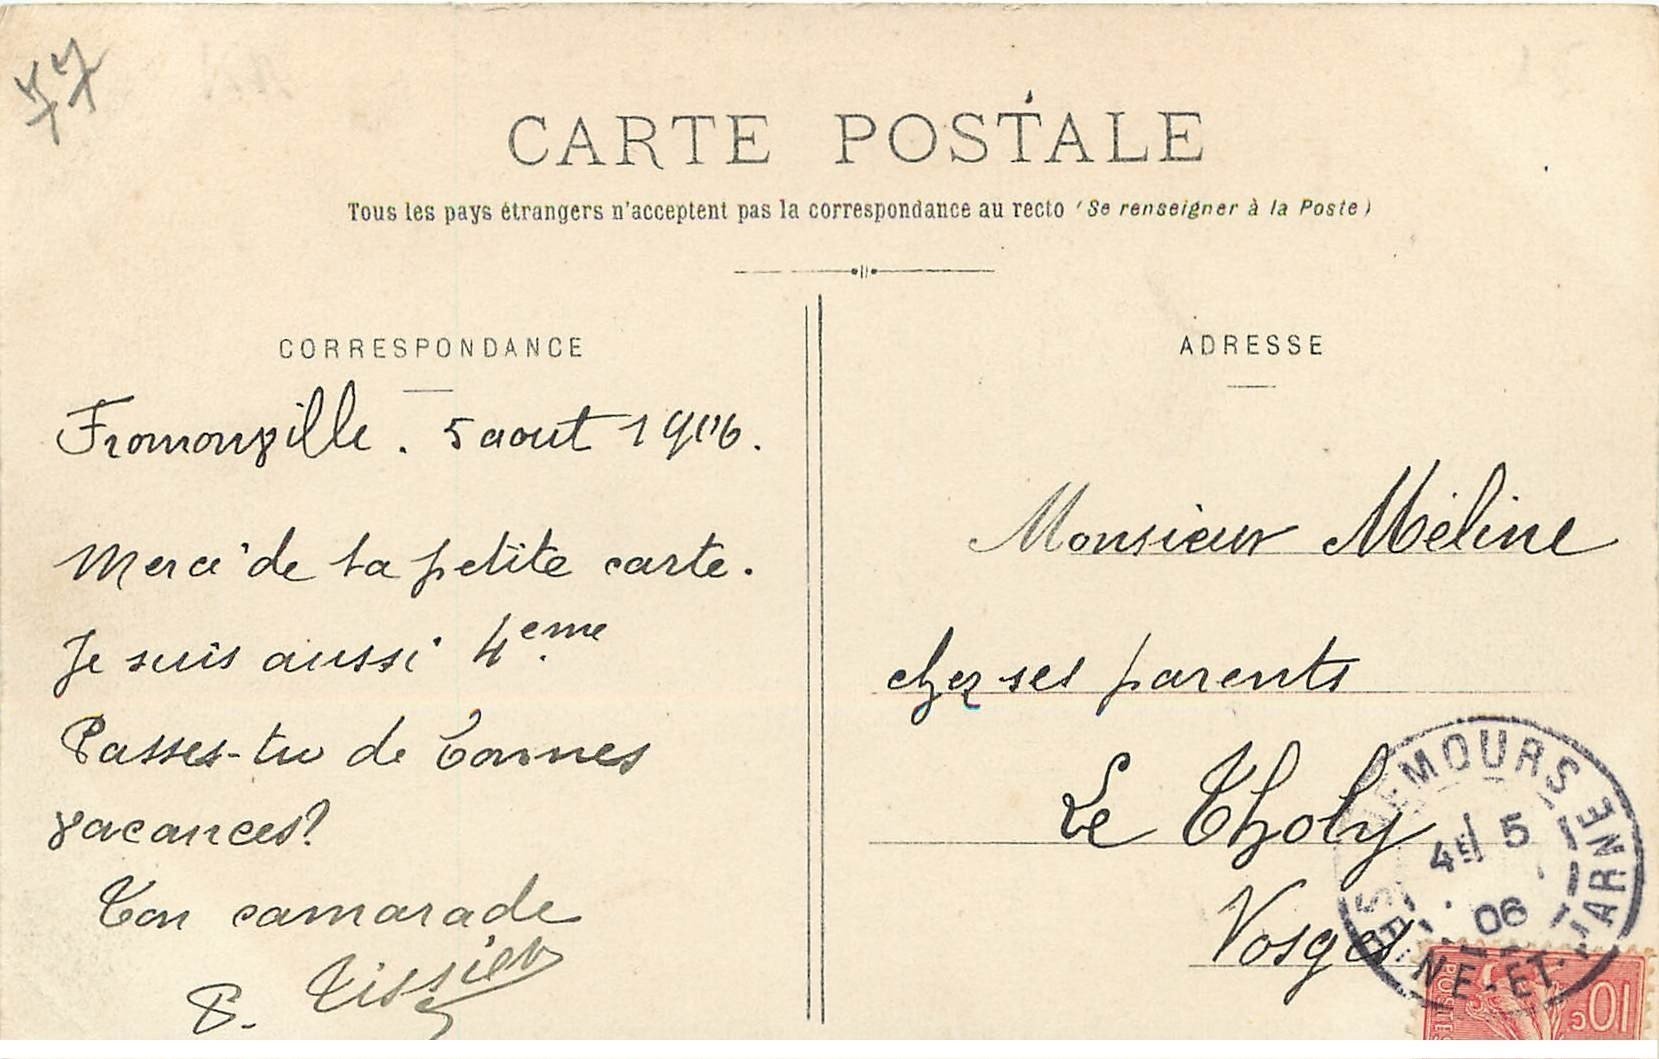 77
CARTE POSTALE
Tous les pays étrangers n'acceptent pas la correspondance au recto (Se renseigner à la Poste)
CORRESPONDANCE
Fromonville. 5 aout 1906.
Merci de ta petite carte.
Je suis aussi 4eme
Passes-tu de bonnes
vacances?
Ton camarade
P. Tissier
ADRESSE
Monsieur Méline
chez ses parents
Le Tholy
Vosges
NEMOURS
4E 5
06
SEINE-ET-MARNE
POSTES
10c